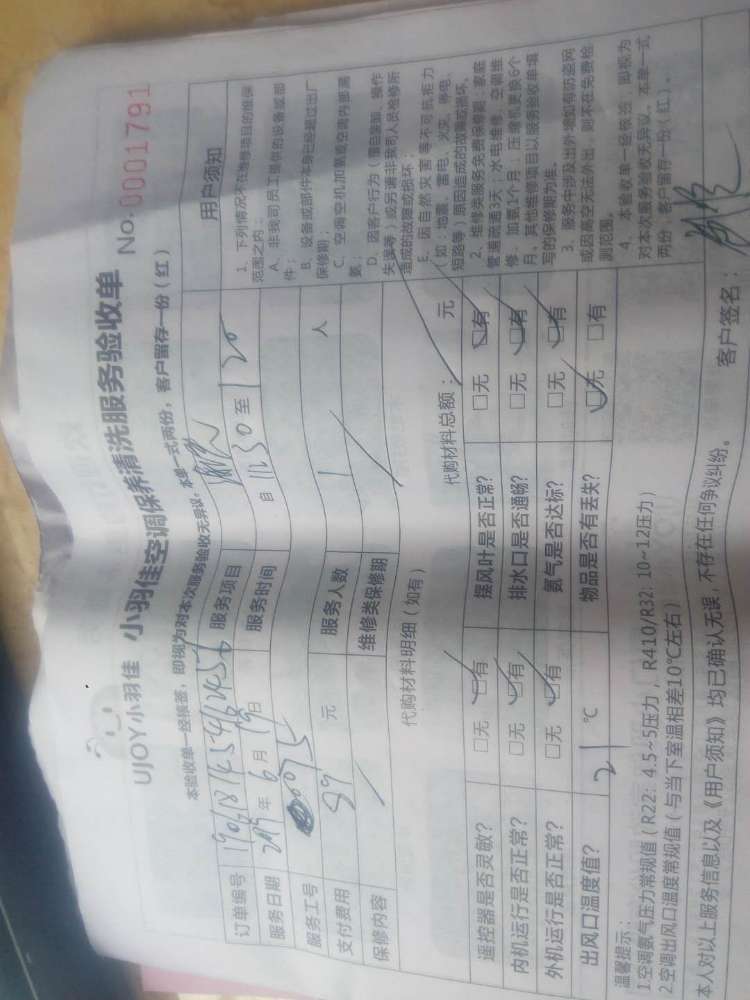 UJOY小羽佳 小羽佳空调保养清洗服务验收单 No.0001791
本验收单一经接签，即视为对本次服务验收无异议，本单一式两份，客户留存一份（红）
订单编号 服务项目
服务日期 2019年6月19日 服务时间 自11:30至1:20
服务工号 0075
支付费用 89元 服务人数 1人
保修内容 维修类保修期
代购材料明细（如有） 代购材料总额： 元
遥控器是否灵敏？ □无 □有 摆风叶是否正常？ □无 □有
内机运行是否正常？ □无 □有 排水口是否通畅？ □无 □有
外机运行是否正常？ □无 □有 氨气是否达标？ □无 □有
出风口温度值？ 21 ℃ 物品是否有丢失？ □无 □有
温馨提示：
1.空调氨气压力常规值（R22：4.5~5压力，R410/R32：10~12压力）
2.空调出风口温度常规值（与当下室温相差10℃左右）
本人对以上服务信息以及《用户须知》均已确认无误，不存在任何争议纠纷。 客户签名：
用户须知
1、下列情况不在维修项目的维保
范围之内：
A、非我司员工提供的设备或部
件；
B、设备或部件本身已经超过出厂
保修期；
C、空调空机加氨或空调内部漏
氨；
D、因客户行为（擅自装卸、操作
失误等）或另请非我司人员检修所
造成的故障或损坏；
E、因自然灾害等不可抗拒力
（如：地震、雷电、火灾、停电、
短路等）原因造成的故障或损坏。
2、维修类服务免费保修期：家庭
管道疏通3天；水电维修、空调维
修、加氨1个月；压缩机更换6个
月，其他维修项目以服务验收单填
写的保修期为准。
3、服务中涉及出外墙如有防盗网
或因高空无法外出，则不在免费检
测范围。
4、本验收单一经核签，即视为
对本次服务验收无异议，本单一式
两份，客户留存一份（红）。